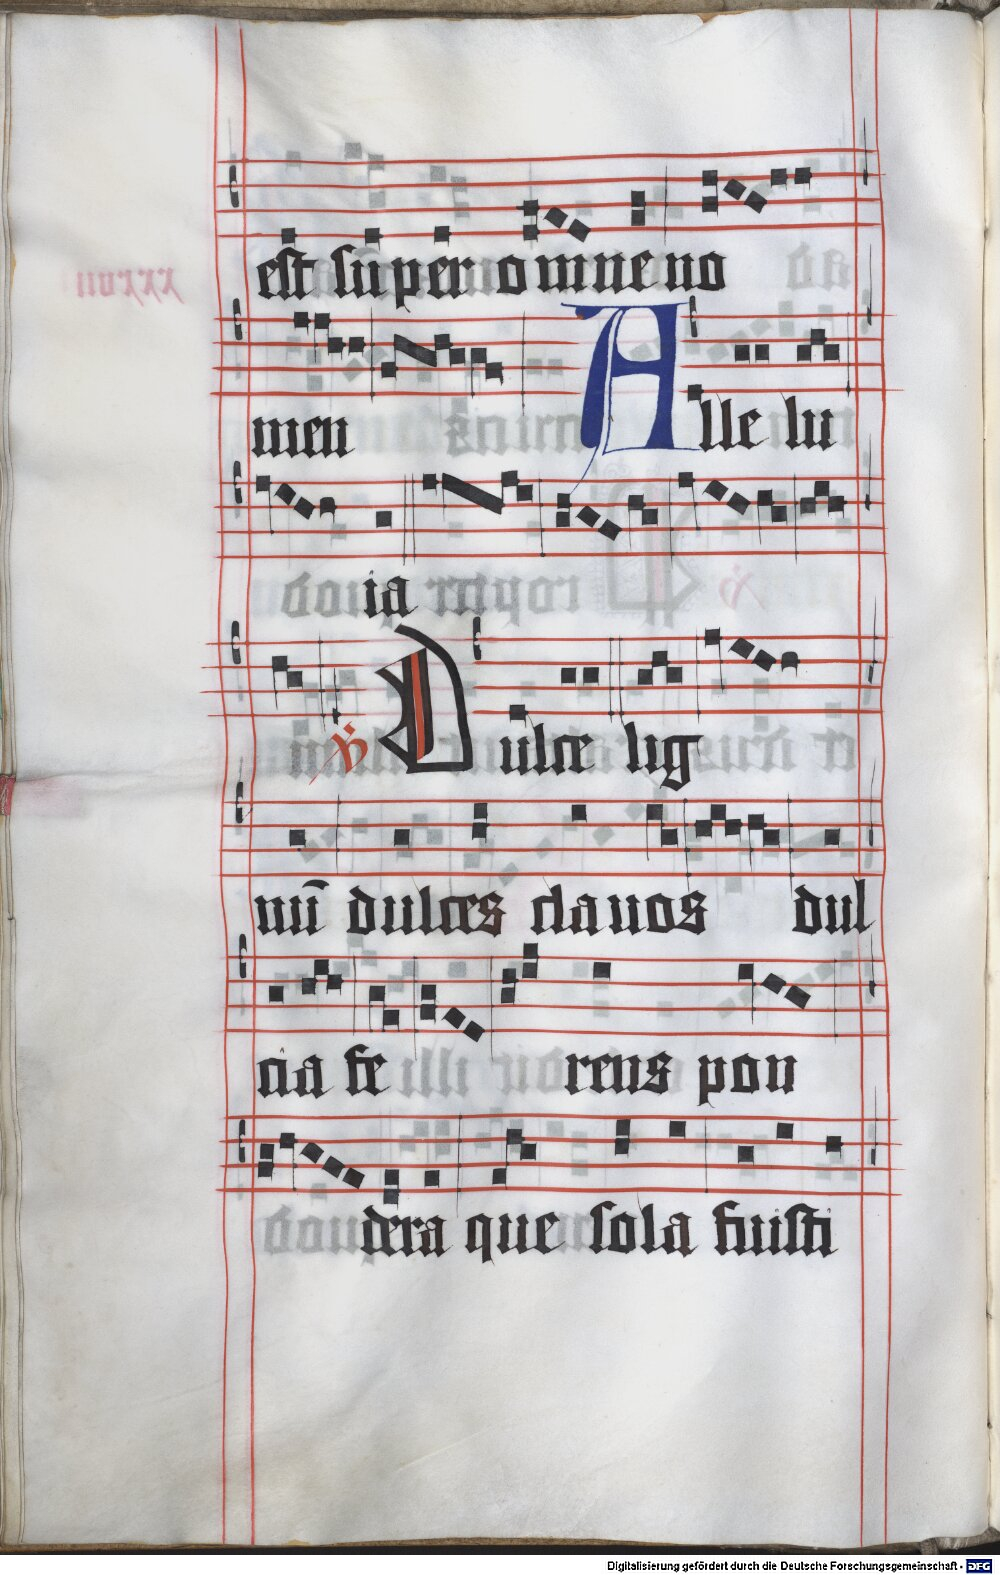 est super omne no
men Alle lu
ia
℣ Dulce lig
nū dulces clauos dul
cia fe rens pon
dera que sola fuisti
Digitalisierung gefördert durch die Deutsche Forschungsgemeinschaft - DFG